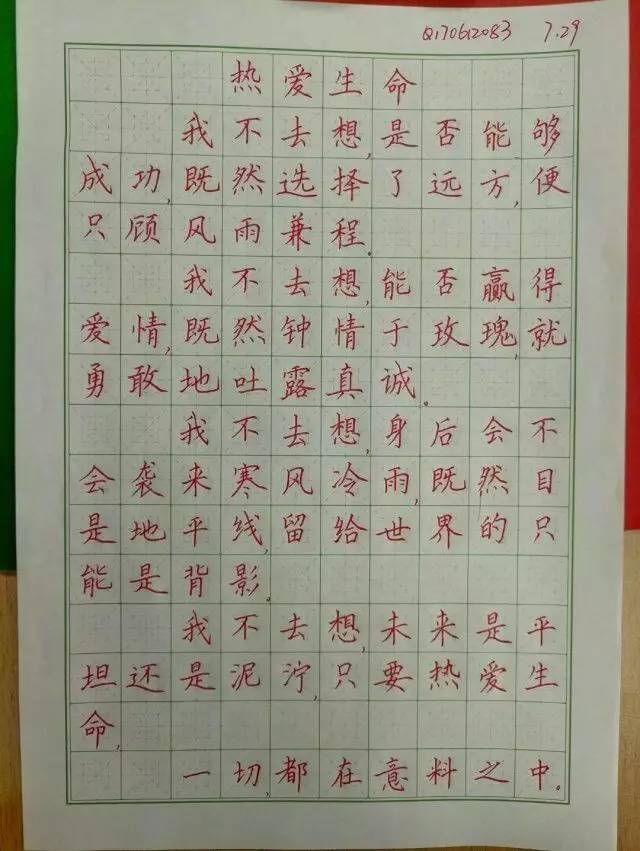 Q170612083 7.29
热爱生命
我不去想,是否能够
成功,既然选择了远方,便
只顾风雨兼程.
我不去想,能否赢得
爱情,既然钟情于玫瑰,就
勇敢地吐露真诚。
我不去想,身后会不
会袭来寒风冷雨,既然目
是地平线,留给世界的只
能是背影.
我不去想,未来是平
坦还是泥泞,只要热爱生
命,
一切,都在意料之中。